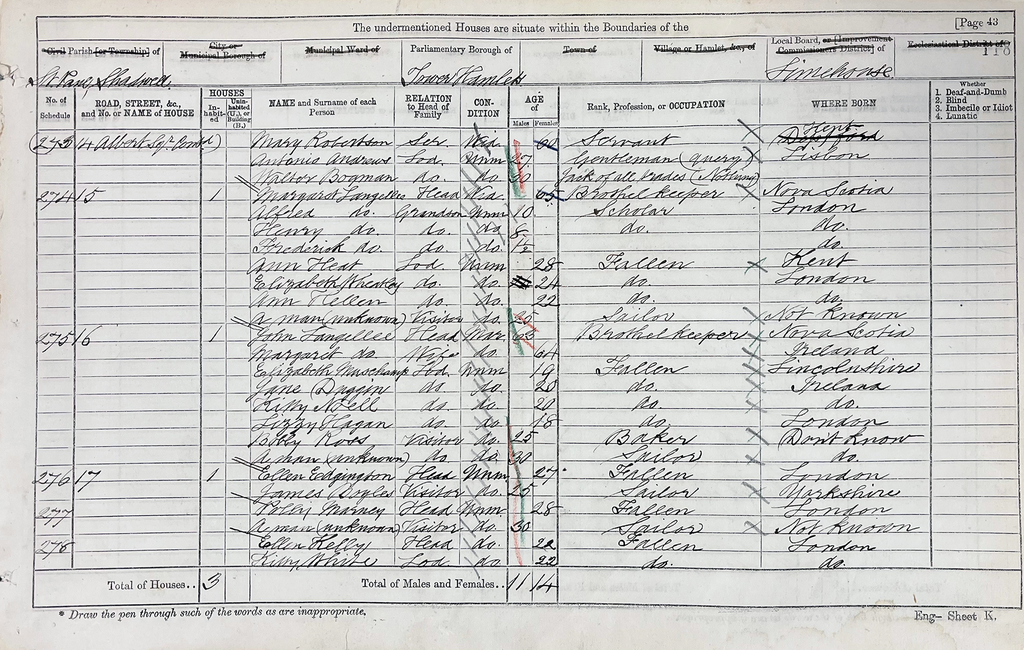 The undermentioned Houses are situate within the Boundaries of the
[Page 43
Civil Parish [or Township] of
City or Municipal Borough of
Municipal Ward of
Parliamentary Borough of
Town of
Village or Hamlet, &c., of
Local Board, or [Improvement Commissioners District] of
Ecclesiastical District of
118
St. Paul Shadwell
Tower Hamlets
Limehouse
No. of Schedule
ROAD, STREET, &c., and No. or NAME of HOUSE
HOUSES
Inhabited
Uninhabited (U.), or Building (B.)
NAME and Surname of each Person
RELATION to Head of Family
CONDITION
AGE of
Males
Females
Rank, Profession, or OCCUPATION
WHERE BORN
Whether
1. Deaf-and-Dumb
2. Blind
3. Imbecile or Idiot
4. Lunatic
273 14 Albert Sqr Mary Robertson Ser. Wid. 60 Servant Kent Deptford
Antonio Andrews Lod. Unm 37 Gentleman (query) Lisbon
Walter Bogman do. do. 30 Jack of all trades (Nothing)
274 15 1 Margaret Langellee Head Wid. 65 Brothel keeper Nova Scotia
Alfred do. Grandson Unm 10 Scholar London
Henry do. do. do. 8 do. do.
Frederick do. do. do. do.
Ann Heat Lod. Unm 28 Fallen Kent
Elizabeth Wheatley do. do. 24 do. London
Ann Hellen do. do. 22 do. do.
A man (unknown) Visitor do. 25 Sailor Not Known
275 16 1 John Langellee Head Mar 63 Brothel keeper Nova Scotia
Margaret do. Wife do. 64 Ireland
Elizabeth Muschamp Lod. Unm 19 Fallen Lincolnshire
Jane Duggin do. do. 20 do. Ireland
Kitty Neell do. do. 20 do. do.
Lizzy Hagan do. do. 18 do. London
Bobby Ross Visitor do. 25 Baker Don't Know
A man (unknown) do. do. 30 Sailor do.
276 17 1 Ellen Edgington Head Unm 27 Fallen London
James Doyles Visitor do. 25 Sailor Yorkshire
277 Polly Marney Head Unm 28 Fallen London
A man (unknown) Visitor do. 30 Sailor Not Known
278 Ellen Kelly Head do. 22 Fallen London
Kitty White Lod do. 22 do. do.
Total of Houses.. 3
Total of Males and Females.. 11 14
* Draw the pen through such of the words as are inappropriate.
Eng- Sheet K.